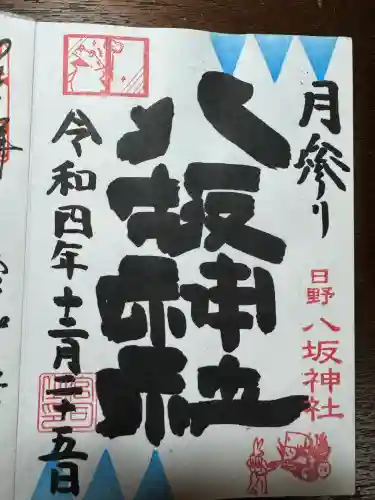 月参り
日野八坂神社
八坂神社
令和四年十二月二十五日